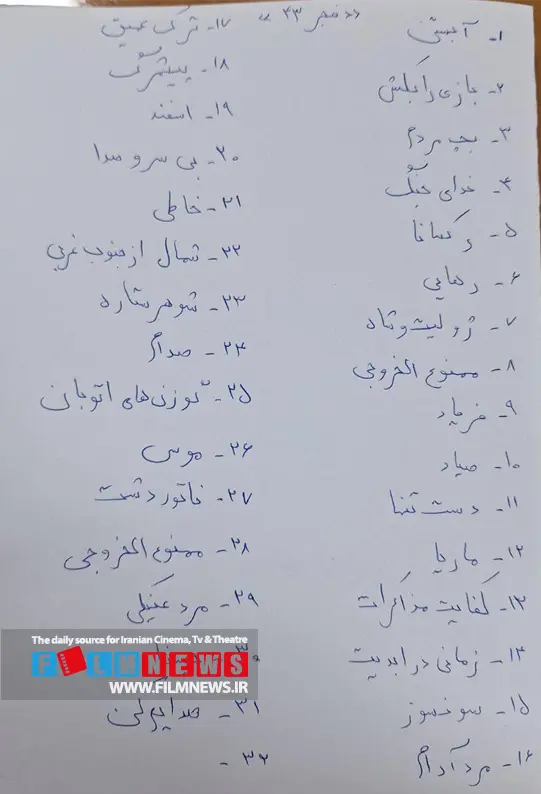 « فجر ۴۳ »
۱- آبستن
۲- بازی را بکش
۳- بچه مردم
۴- خدای جنگ
۵- رکسانا
۶- رهایی
۷- ژولیت و شاه
۸- ممنوع الخروجی
۹- فریاد
۱۰- صیاد
۱۱- دست تنها
۱۲- ماریا
۱۳- کفایت مذاکرات
۱۴- زمانی در ابدیت
۱۵- سونسوز
۱۶- مرد آرام
۱۷- ترک عمیق
۱۸- پیشمرگ
۱۹- اسفند
۲۰- بی سر و صدا
۲۱- خاطی
۲۲- شمال از جنوب غربی
۲۳- شوهر ستاره
۲۴- صدام
۲۵- گوزن‌های اتوبان
۲۶- موسی
۲۷- ناتور دشت
۲۸- ممنوع الخروجی
۲۹- مرد عینکی
The daily source for Iranian Cinema, Tv & Theatre
FILMNEWS
WWW.FILMNEWS.IR
۳۱-
۳۲-